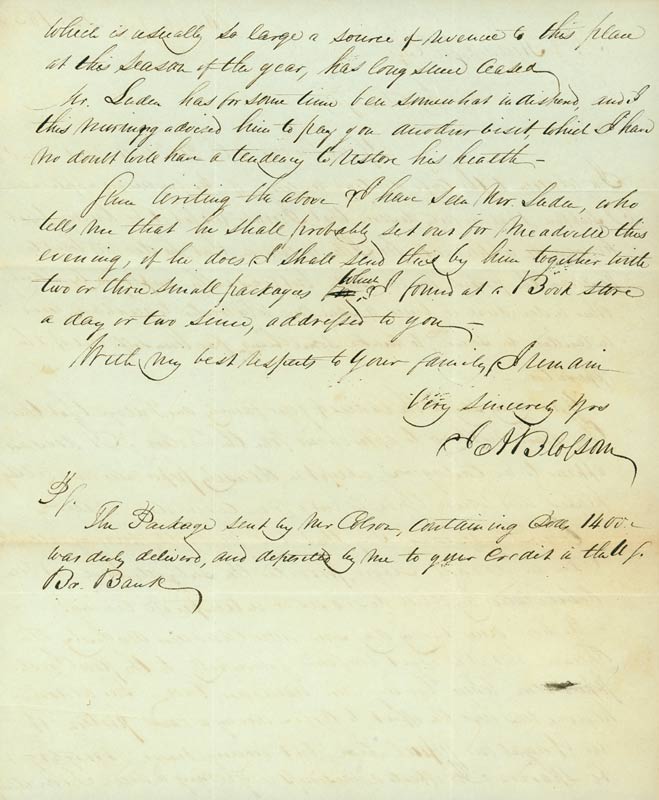 which is usually so large a source of revenue to this place
at this season of the year, has long since ceased
Mr. Luden has for some time been somewhat indisposed, and I
this morning advised him to pay you another visit, which I have
no doubt will have a tendency to restore his health —
Since writing the above I have seen Mr. Luden, who
tells me that he shall probably set out for Meadville this
evening, if he does I shall send this by him together with
two or three small packages which I found at a Book store
a day or two since, addressed to you —
With my best respects to your family, I remain
Very sincerely yrs
A Blossom
PS.
The Package sent by Mr Colson, containing Dolls 1400
was duly delivered, and deposited by me to your credit in the U S.
Br. Bank